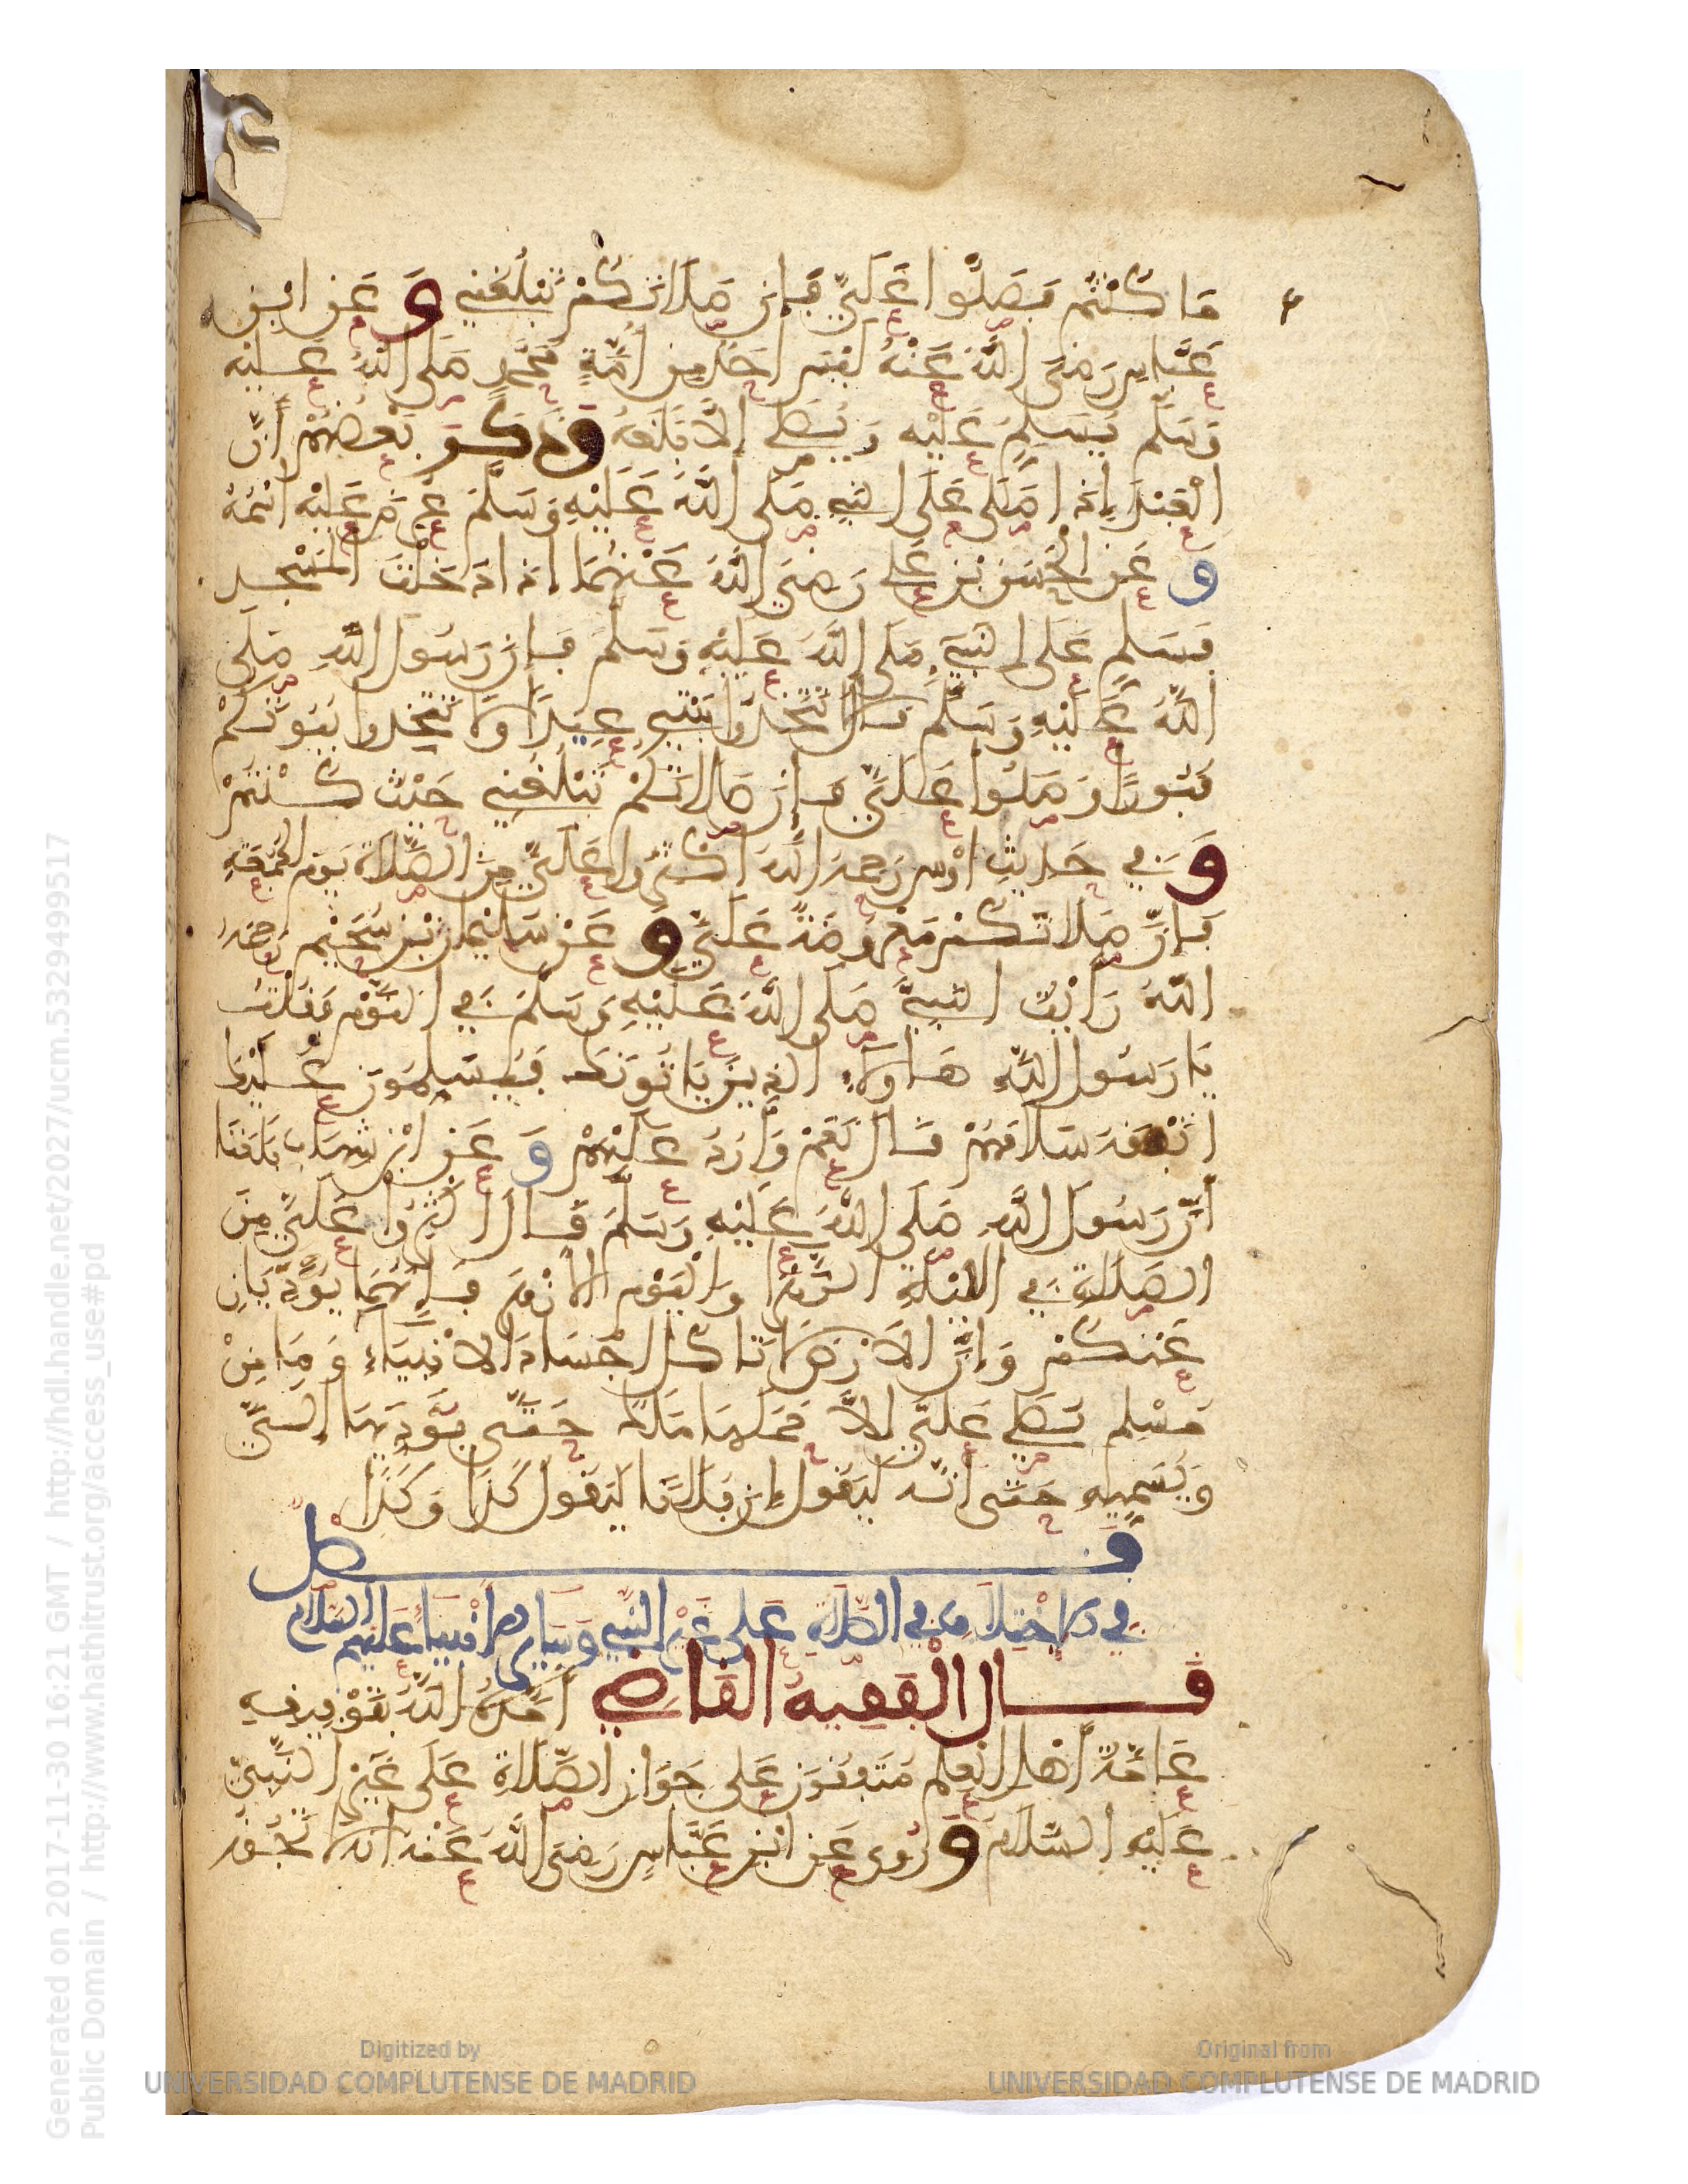 ما كنتم فصلوا علي فإن صلاتكم تبلغني وعن ابن
عباس رضي الله عنه ليس احد من امة محمد صلى الله عليه
وسلم يسلم عليه ويصلي إلا بلغه وذكر بعضهم أن
العبد إذا صلى على النبي صلى الله عليه وسلم عرض عليه اسمه
وعن الحسن بن علي رضي الله عنهما اذا دخلت المسجد
فسلم على النبي صلى الله عليه وسلم فإن رسول الله صلى
الله عليه وسلم قال لا تتخذوا بيتي عيدا ولا تتخذوا بيوتكم
قبورا وصلوا علي فإن صلاتكم تبلغني حيث كنتم
وفي حديث اوس رحمه الله اكثروا علي من الصلاة يوم الجمعة
فإن صلاتكم معروضة علي وعن سليمان بن سحيم رحمه
الله رأيت النبي صلى الله عليه وسلم في النوم فقلت
يا رسول الله هاولاء الذين ياتونك فيسلمون عليك
اتفقه سلامهم قال نعم وأرد عليهم وعن ابن شهاب بلغنا
أن رسول الله صلى الله عليه وسلم قال اكثروا علي من
الصلاة في الليلة الزهرا واليوم الازهر فإنهما يؤديان
عنكم وإن الارض لا تاكل اجساد الانبياء وما من
مسلم يصلي علي إلا حملها ملك حتى يؤديها إلي
ويسميه حتى أنه ليقول إن فلانا ليقول كذا وكذا
فصل
في الاختلاف في الصلاة على غير النبي وساير الانبيا عليهم السلام
قال الفقيه القاضي
عامة أهل العلم متفقون على جواز الصلاة على غير النبي
عليه السلام وروي عن ابن عباس رضي الله عنه انه لا تجوز
Generated on 2017-11-30 16:21 GMT / http://hdl.handle.net/2027/ucm.5329499517
Public Domain / http://www.hathitrust.org/access_use#pd
Digitized by
UNIVERSIDAD COMPLUTENSE DE MADRID
Original from
UNIVERSIDAD COMPLUTENSE DE MADRID